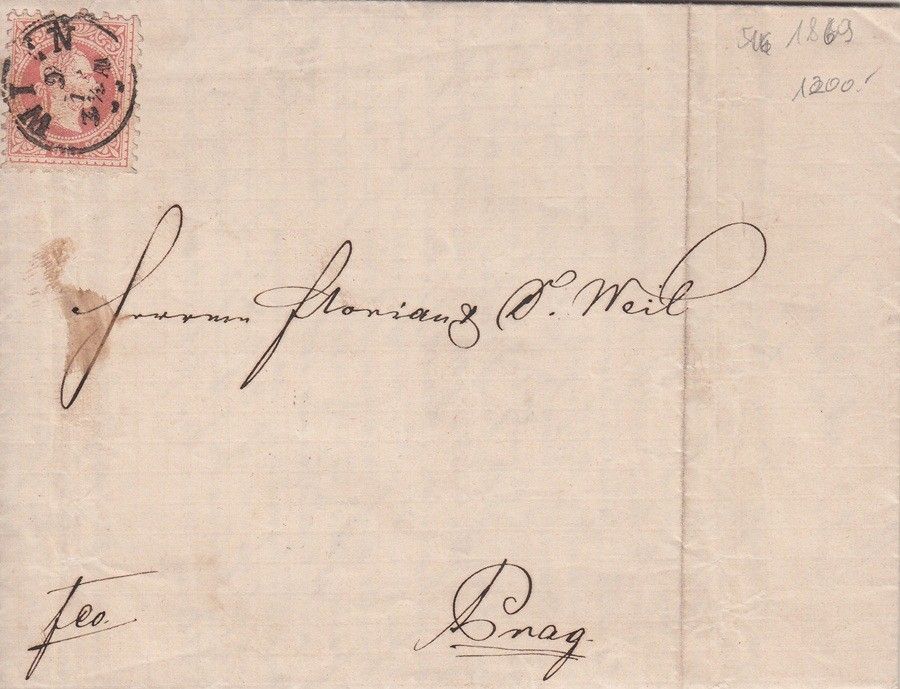 WIEN
9
1
3½ N
1869
1200.-
Herren Florian & S. Weil
fco.
Prag.